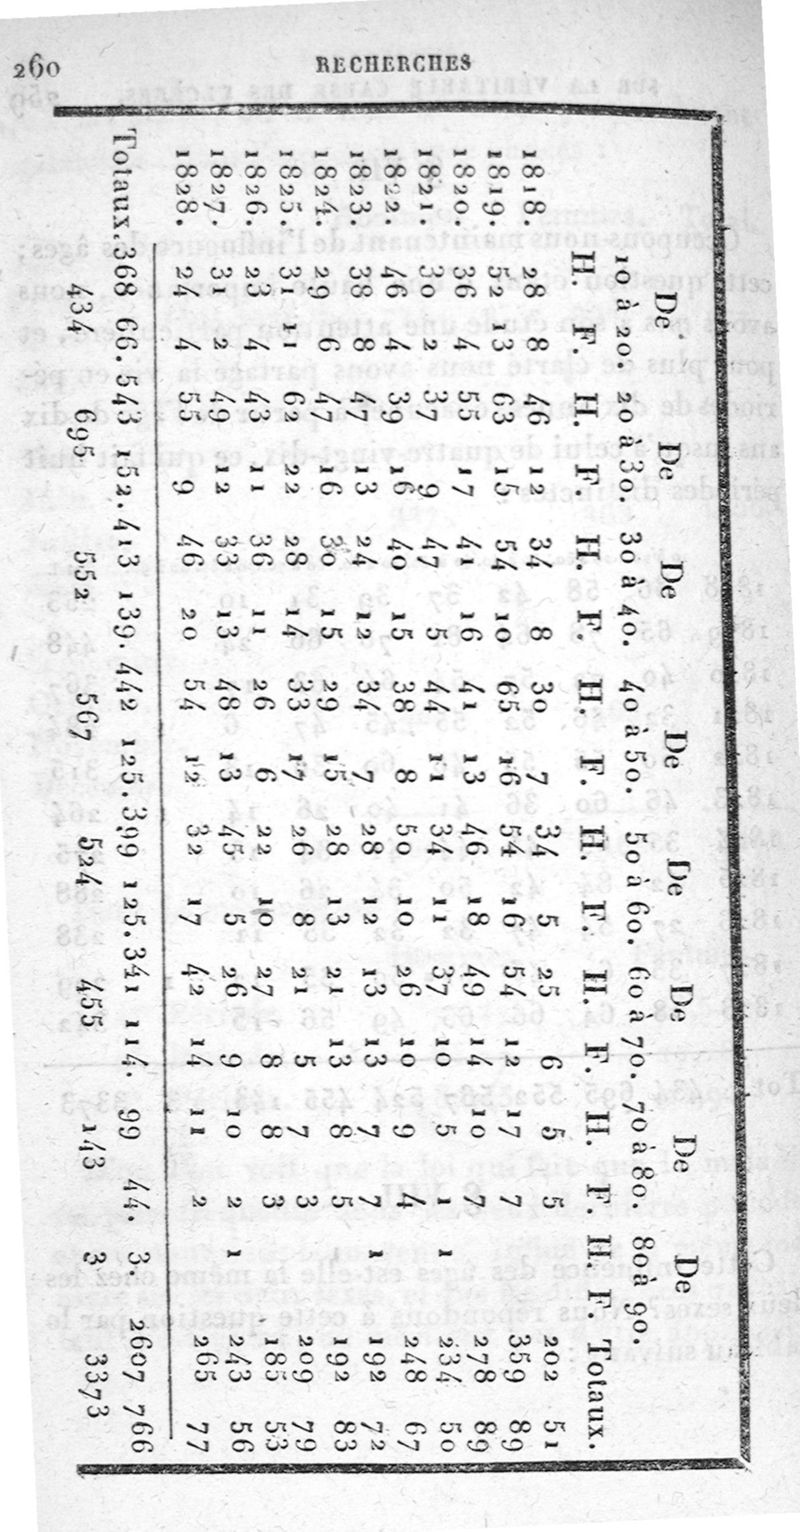 260
RECHERCHES
De De De De De De De De
10 à 20. 20 à 30. 30 à 40. 40 à 50. 50 à 60. 60 à 70. 70 à 80. 80 à 90.
H. F. H. F. H. F. H. F. H. F. H. F. H. F. H F Totaux.
1818. 28 8 46 12 34 8 30 7 34 5 25 6 5 5 202 51
1819. 52 13 63 15 54 10 65 16 54 16 54 12 17 7 359 89
1820. 36 4 55 17 41 16 41 13 46 18 49 14 10 7 278 89
1821. 30 2 37 9 47 5 44 11 34 11 37 10 5 1 1 234 50
1822. 46 4 39 16 40 15 38 8 50 10 26 10 9 4 248 67
1823. 38 8 47 13 24 12 34 7 28 12 13 13 7 7 1 192 72
1824. 29 6 47 16 30 15 29 15 28 13 21 13 8 5 192 83
1825. 31 11 62 22 28 14 33 17 26 8 21 5 7 3 209 79
1826. 23 4 43 11 36 11 26 6 22 10 27 8 8 3 185 53
1827. 31 2 49 12 33 13 48 13 45 5 26 9 10 2 1 243 56
1828. 24 4 55 9 46 20 54 12 32 17 42 14 11 2 265 77
Totaux. 368 66. 543 152. 413 139. 442 125 399 125. 341 114. 99 44. 3. 2607 766
434 695 552 567 524 455 143 3 3373